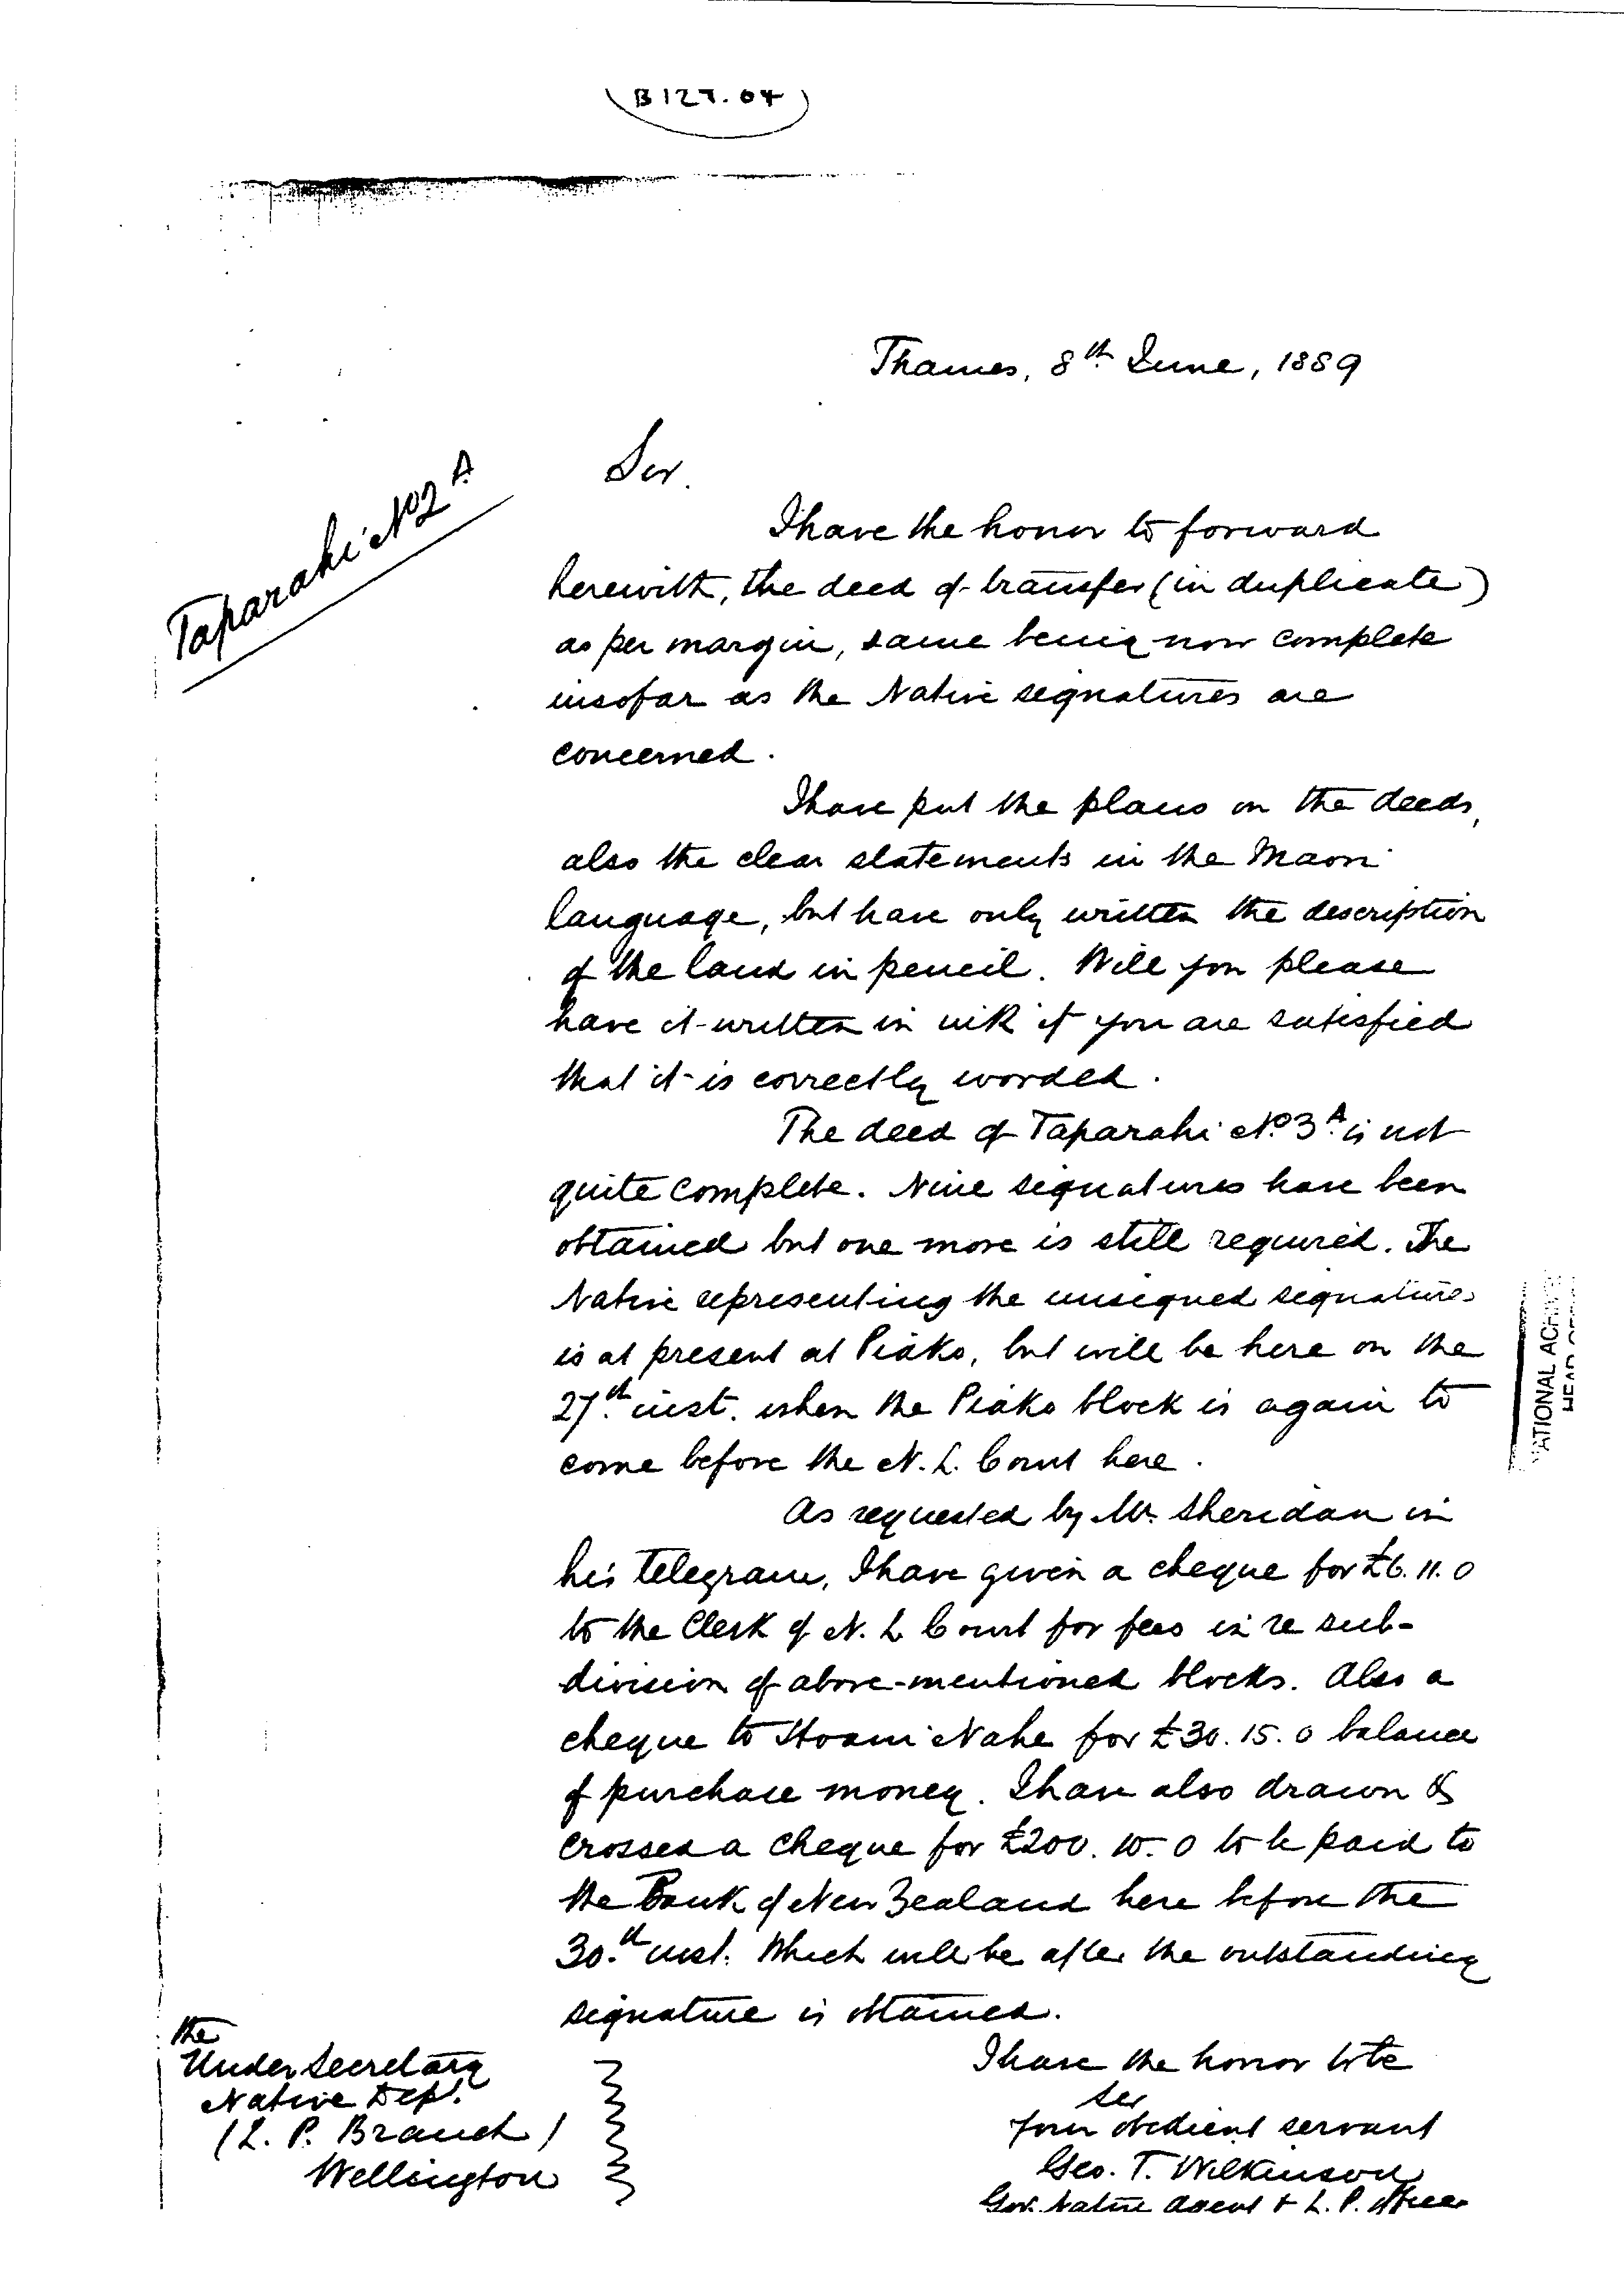 B 127.04
Thames, 8th June, 1889
Taparahi No 2 A
Sir.
I have the honor to forward
herewith, the deed of transfer (in duplicate)
as per margin, same being now complete
insofar as the Native signatures are
concerned.
I have put the plans on the deeds,
also the clear statements in the Maori
language, but have only written the description
of the land in pencil. Will you please
have it written in ink if you are satisfied
that it is correctly worded.
The deed of Taparahi No 3A is not
quite complete. Nine signatures have been
obtained but one more is still required. The
Native representing the unsigned signatures
is at present at Piako, but will be here on the
27th inst. when the Piako block is again to
come before the N. L. Court here.
As requested by Mr. Sheridan in
his telegram, I have given a cheque for £6. 11. 0
to the Clerk of N. L Court for fees in re sub-
division of above-mentioned blocks. Also a
cheque to Hoani Nahe for £30. 15. 0 balance
of purchase money. I have also drawn &
crossed a cheque for £200. 10. 0 to be paid to
the Bank of New Zealand here before the
30th inst. Which will be after the outstanding
signature is obtained.
I have the honor to be
Sir
Your obedient servant
Geo. T. Wilkinson
Gov. Native Agent & L. P. Officer
The
Under Secretary
Native Dept.
(L. P. Branch)
Wellington
ATIONAL ARCHIV
HEAD